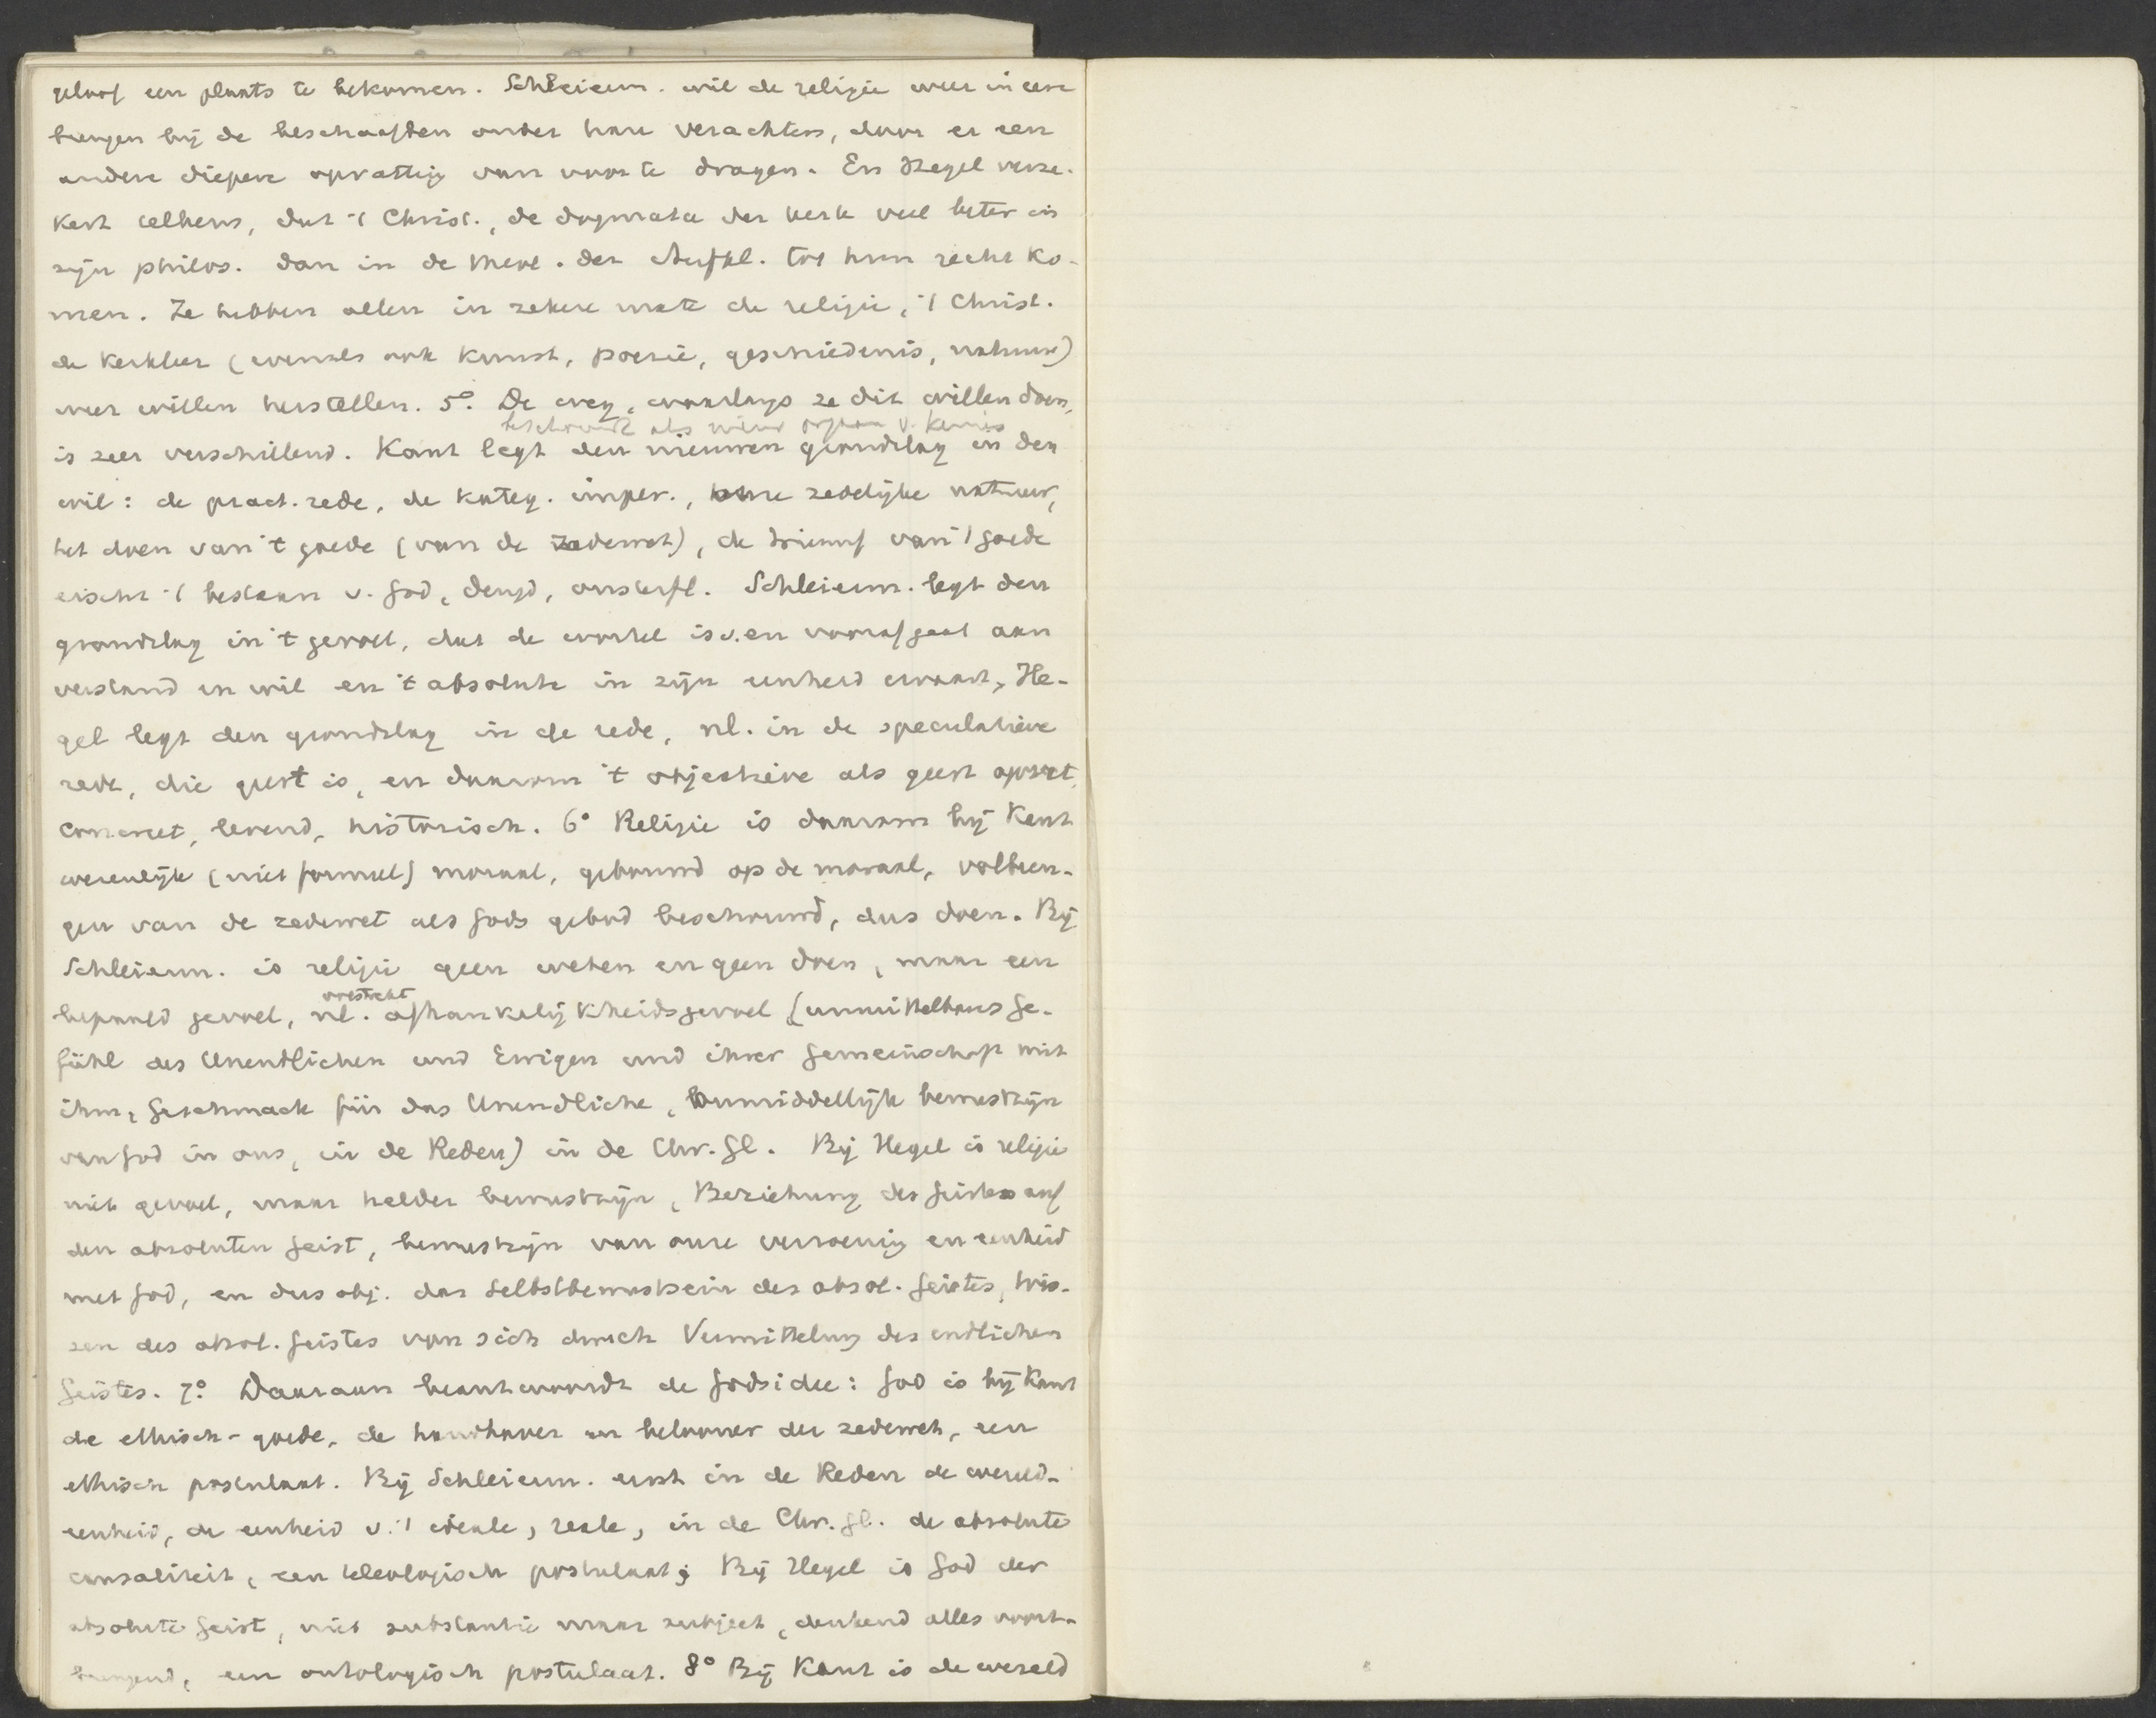 geloof een plaats te bekomen. Schleierm. wil de religie weer in eere
brengen bij de beschaafden onder hare verachters, door er een
andere diepere opvatting van voor te dragen. En Hegel verze-
kert telkens, dat 't Christ., de dogmata der kerk veel beter in
zijn philos. dan in de theol. der Aufkl. tot hun recht ko-
men. Ze hebben allen in zekere mate de religie, 't Christ.
de kerkleer (evenals ook kunst, poezie, geschiedenis, natuur)
weer willen herstellen. 5° De weg, waarlangs ze dit willen doen,
beschouwd als nieuw orgaan v. kennis
is zeer verschillend. Kant legt den nieuwen grondslag in den
wil: de pract. rede, de kateg. imper., onze zedelijke natuur,
het doen van 't goede (van de zedewet), de triumf van 't goede
eischt 't bestaan v. God, deugd, onsterfl. Schleierm. legt den
grondslag in 't gevoel, dat de wortel is v. en voorafgaat aan
verstand en wil en 't absolute in zijn eenheid ervaart. He-
gel legt den grondslag in de rede, nl. in de speculatieve
rede, die geest is, en daarom 't objectieve als geest opvat,
concreet, levend, historisch. 6° Religie is daarom bij Kant
wezenlijk (niet formeel) moraal, gebouwd op de moraal, volbren-
gen van de zedewet als Gods gebod beschouwd, dus doen. Bij
Schleierm. is religie geen weten en geen doen, maar een
volstrekt
bepaald gevoel, nl. afhankelijkheidsgevoel (unmittelbares Ge-
fühl des Unendlichen und Ewigen und ihrer Gemeinschaft mit
ihm, Geschmack für das Unendliche, onmiddellijk bewustzijn
van God in ons, in de Reden) in de Chr. Gl. Bij Hegel is religie
niet gevoel, maar helder bewustzijn, Beziehung des Geistes auf
den absoluten Geist, bewustzijn van onze verzoening en eenheid
met God, en dus obj. das Selbstbewustsein des absol. Geistes, Wis-
sen des absol. Geistes von sich durch Vermittelung des endlichen
Geistes. 7° Daaraan beantwoordt de Godsidee: God is bij Kant
de ethisch-goede, de handhaver en belooner der zedewet, een
ethisch postulaat. Bij Schleierm. eerst in de Reden de wereld-
eenheid, de eenheid v. 't ideale, reale, in de Chr. Gl. de absolute
causaliteit, een teleologisch postulaat; Bij Hegel is God der
absolute Geist, niet substantie maar subject, denkend alles voort-
brengend, een ontologisch postulaat. 8° Bij Kant is de wereld